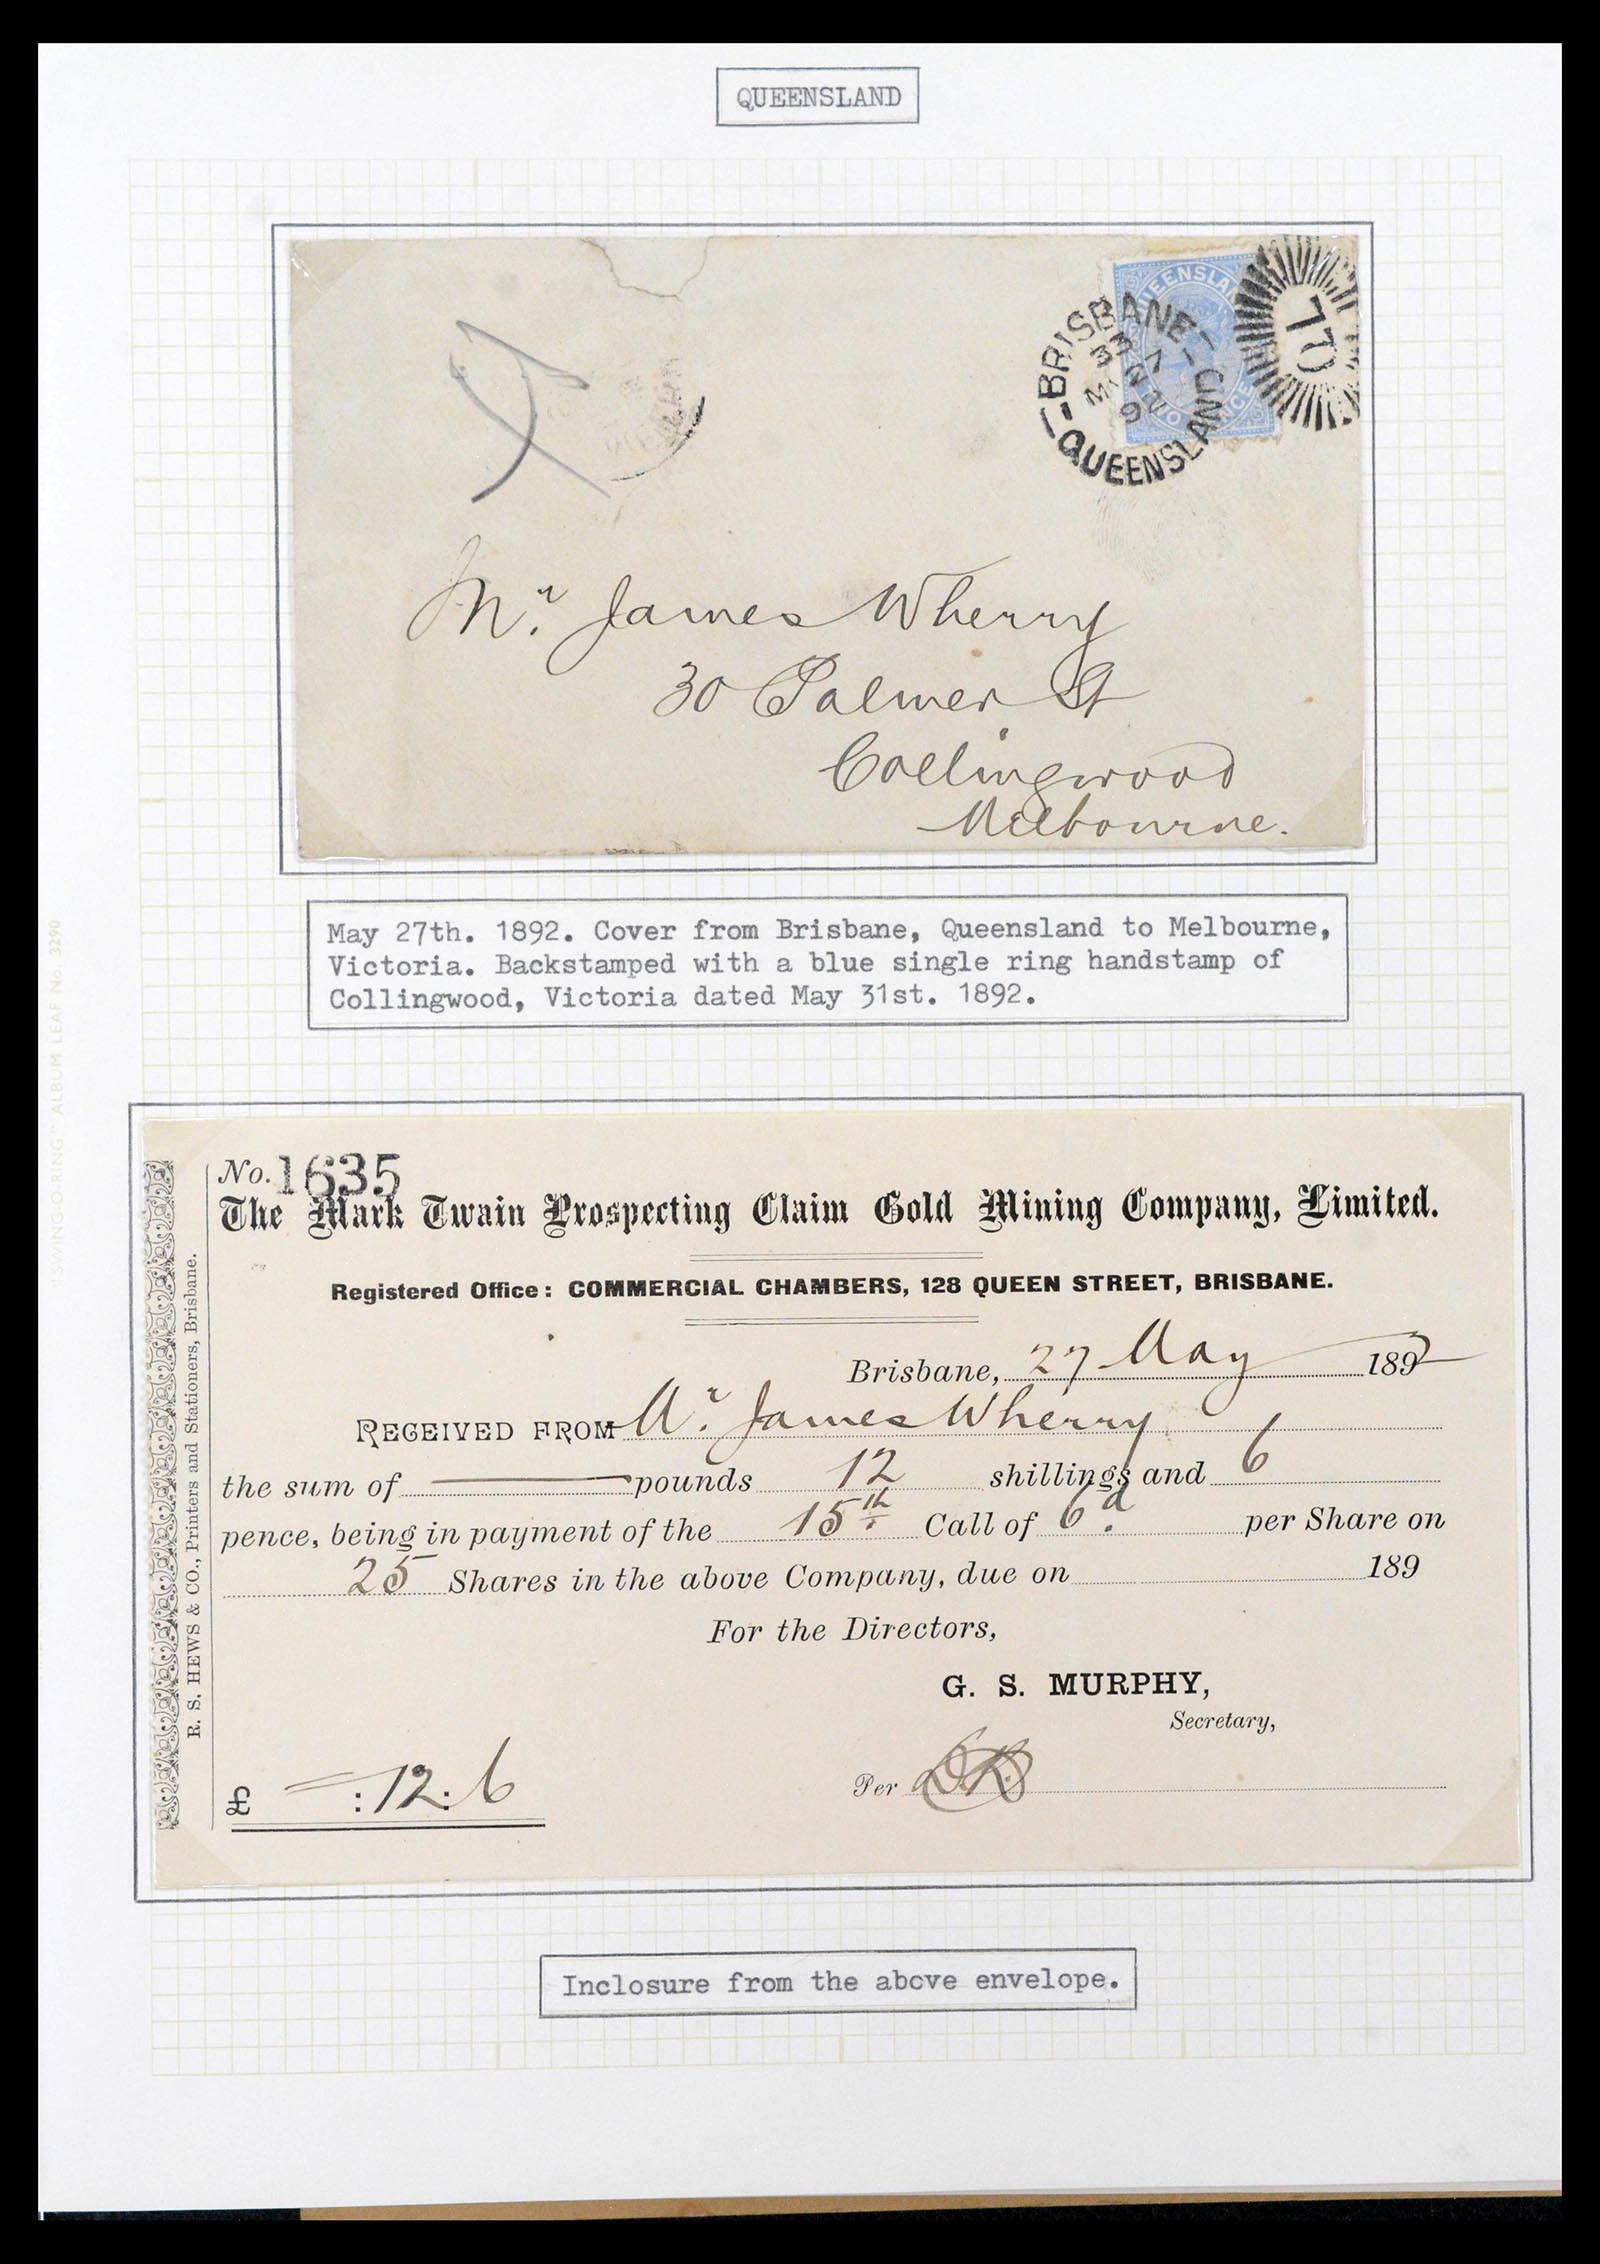 QUEENSLAND
QUEENSLAND
TWO PENCE
BRISBANE
27
MY
92
QUEENSLAND
QL
Mr. James Wherry
30 Palmer St
Collingwood
Melbourne.
May 27th. 1892. Cover from Brisbane, Queensland to Melbourne,
Victoria. Backstamped with a blue single ring handstamp of
Collingwood, Victoria dated May 31st. 1892.
"SWING-O-RING" ALBUM LEAF No. 3290
No. 1635
The Mark Twain Prospecting Claim Gold Mining Company, Limited.
Registered Office: COMMERCIAL CHAMBERS, 128 QUEEN STREET, BRISBANE.
Brisbane, 27 May 1892
RECEIVED FROM Mr. James Wherry
the sum of pounds 12 shillings and 6
pence, being in payment of the 15th Call of 6d. per Share on
25 Shares in the above Company, due on 189
For the Directors,
G. S. MURPHY,
Secretary,
£ : 12 : 6
Per
R. S. HEWS & CO., Printers and Stationers, Brisbane.
Inclosure from the above envelope.